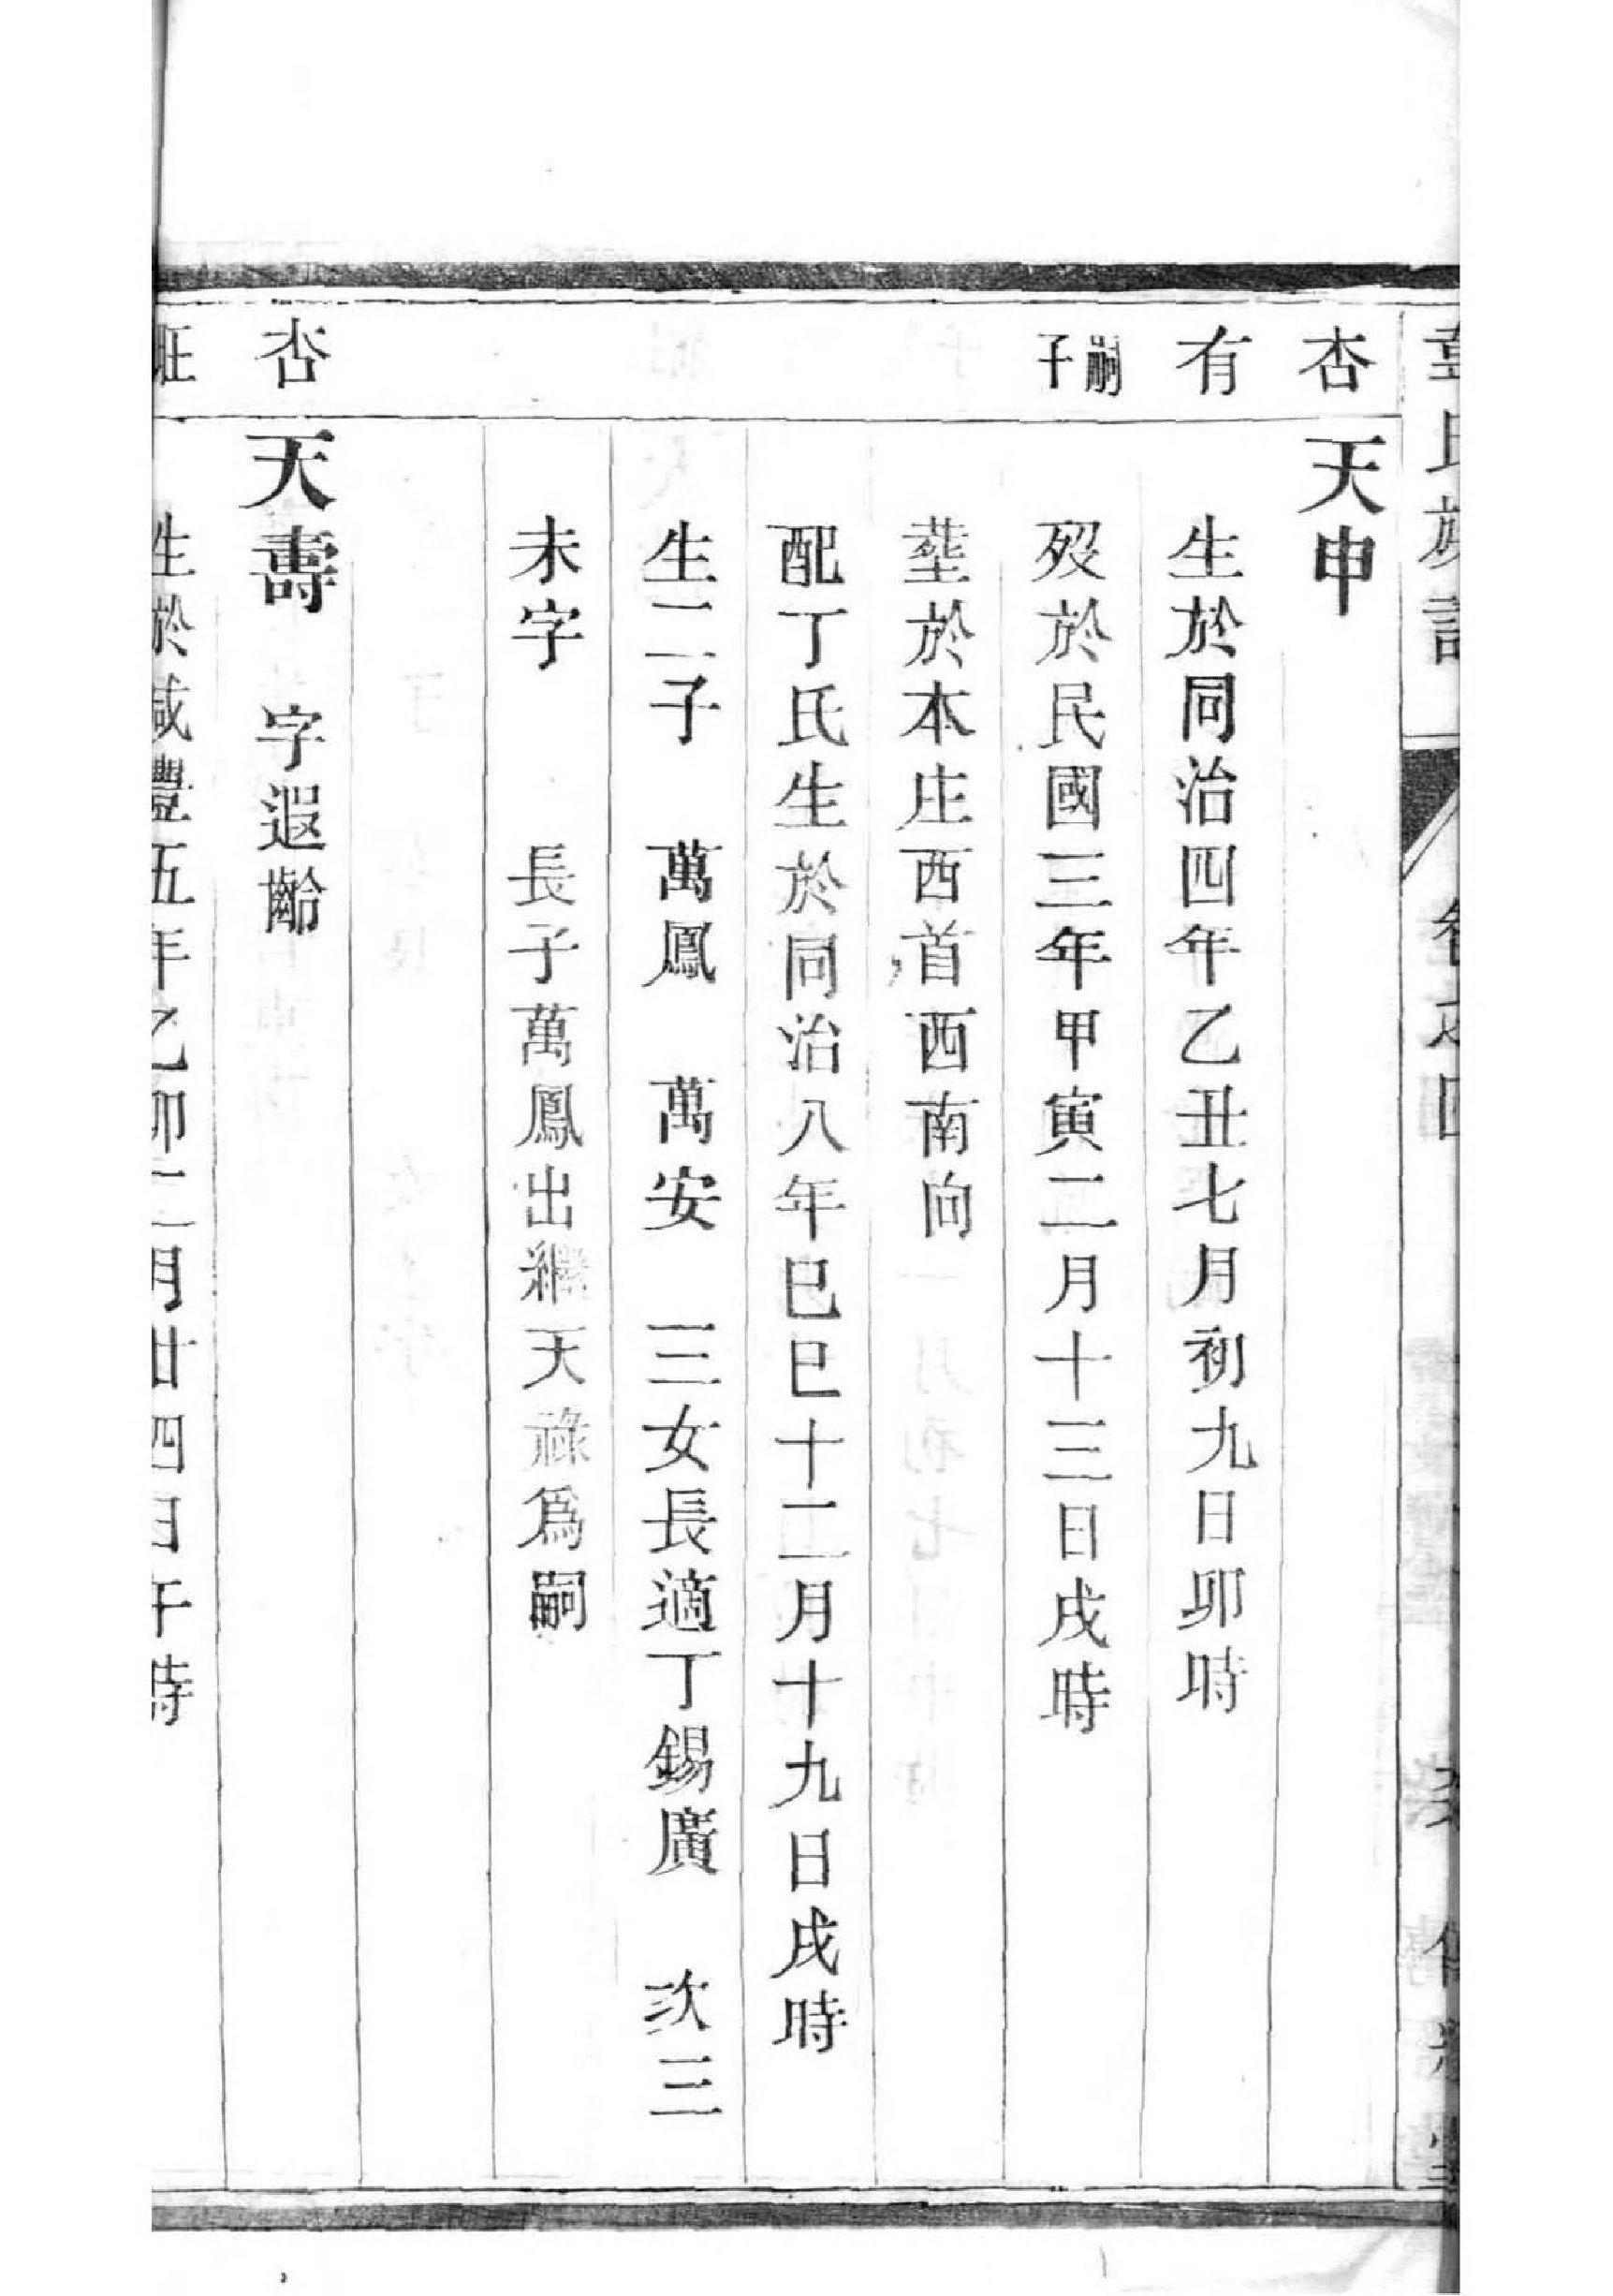 氏族譜 卷之四
杏 天申
有 生於同治四年乙丑七月初九日卯時
嗣子 歿於民國三年甲寅二月十三日戌時
塟於本庄西首西南向
配丁氏生於同治八年巳巳十二月十九日戌時
生二子 萬鳳 萬安 三女長適丁錫廣 次三
未字 長子萬鳳出繼天祿爲嗣
杏 天壽 字遐齡
生於咸豐五年乙卯二月廿四日午時